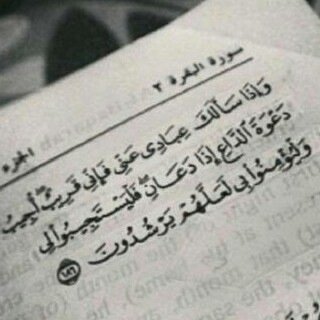 سورة البقرة ٢ الجزء
وَإِذَا سَأَلَكَ عِبَادِى عَنِّى فَإِنِّى قَرِيبٌ ۖ أُجِيبُ
دَعْوَةَ الدَّاعِ إِذَا دَعَانِ ۖ فَلْيَسْتَجِيبُوا لِى
وَلْيُؤْمِنُوا بِى لَعَلَّهُمْ يَرْشُدُونَ ﴿١٨٦﴾